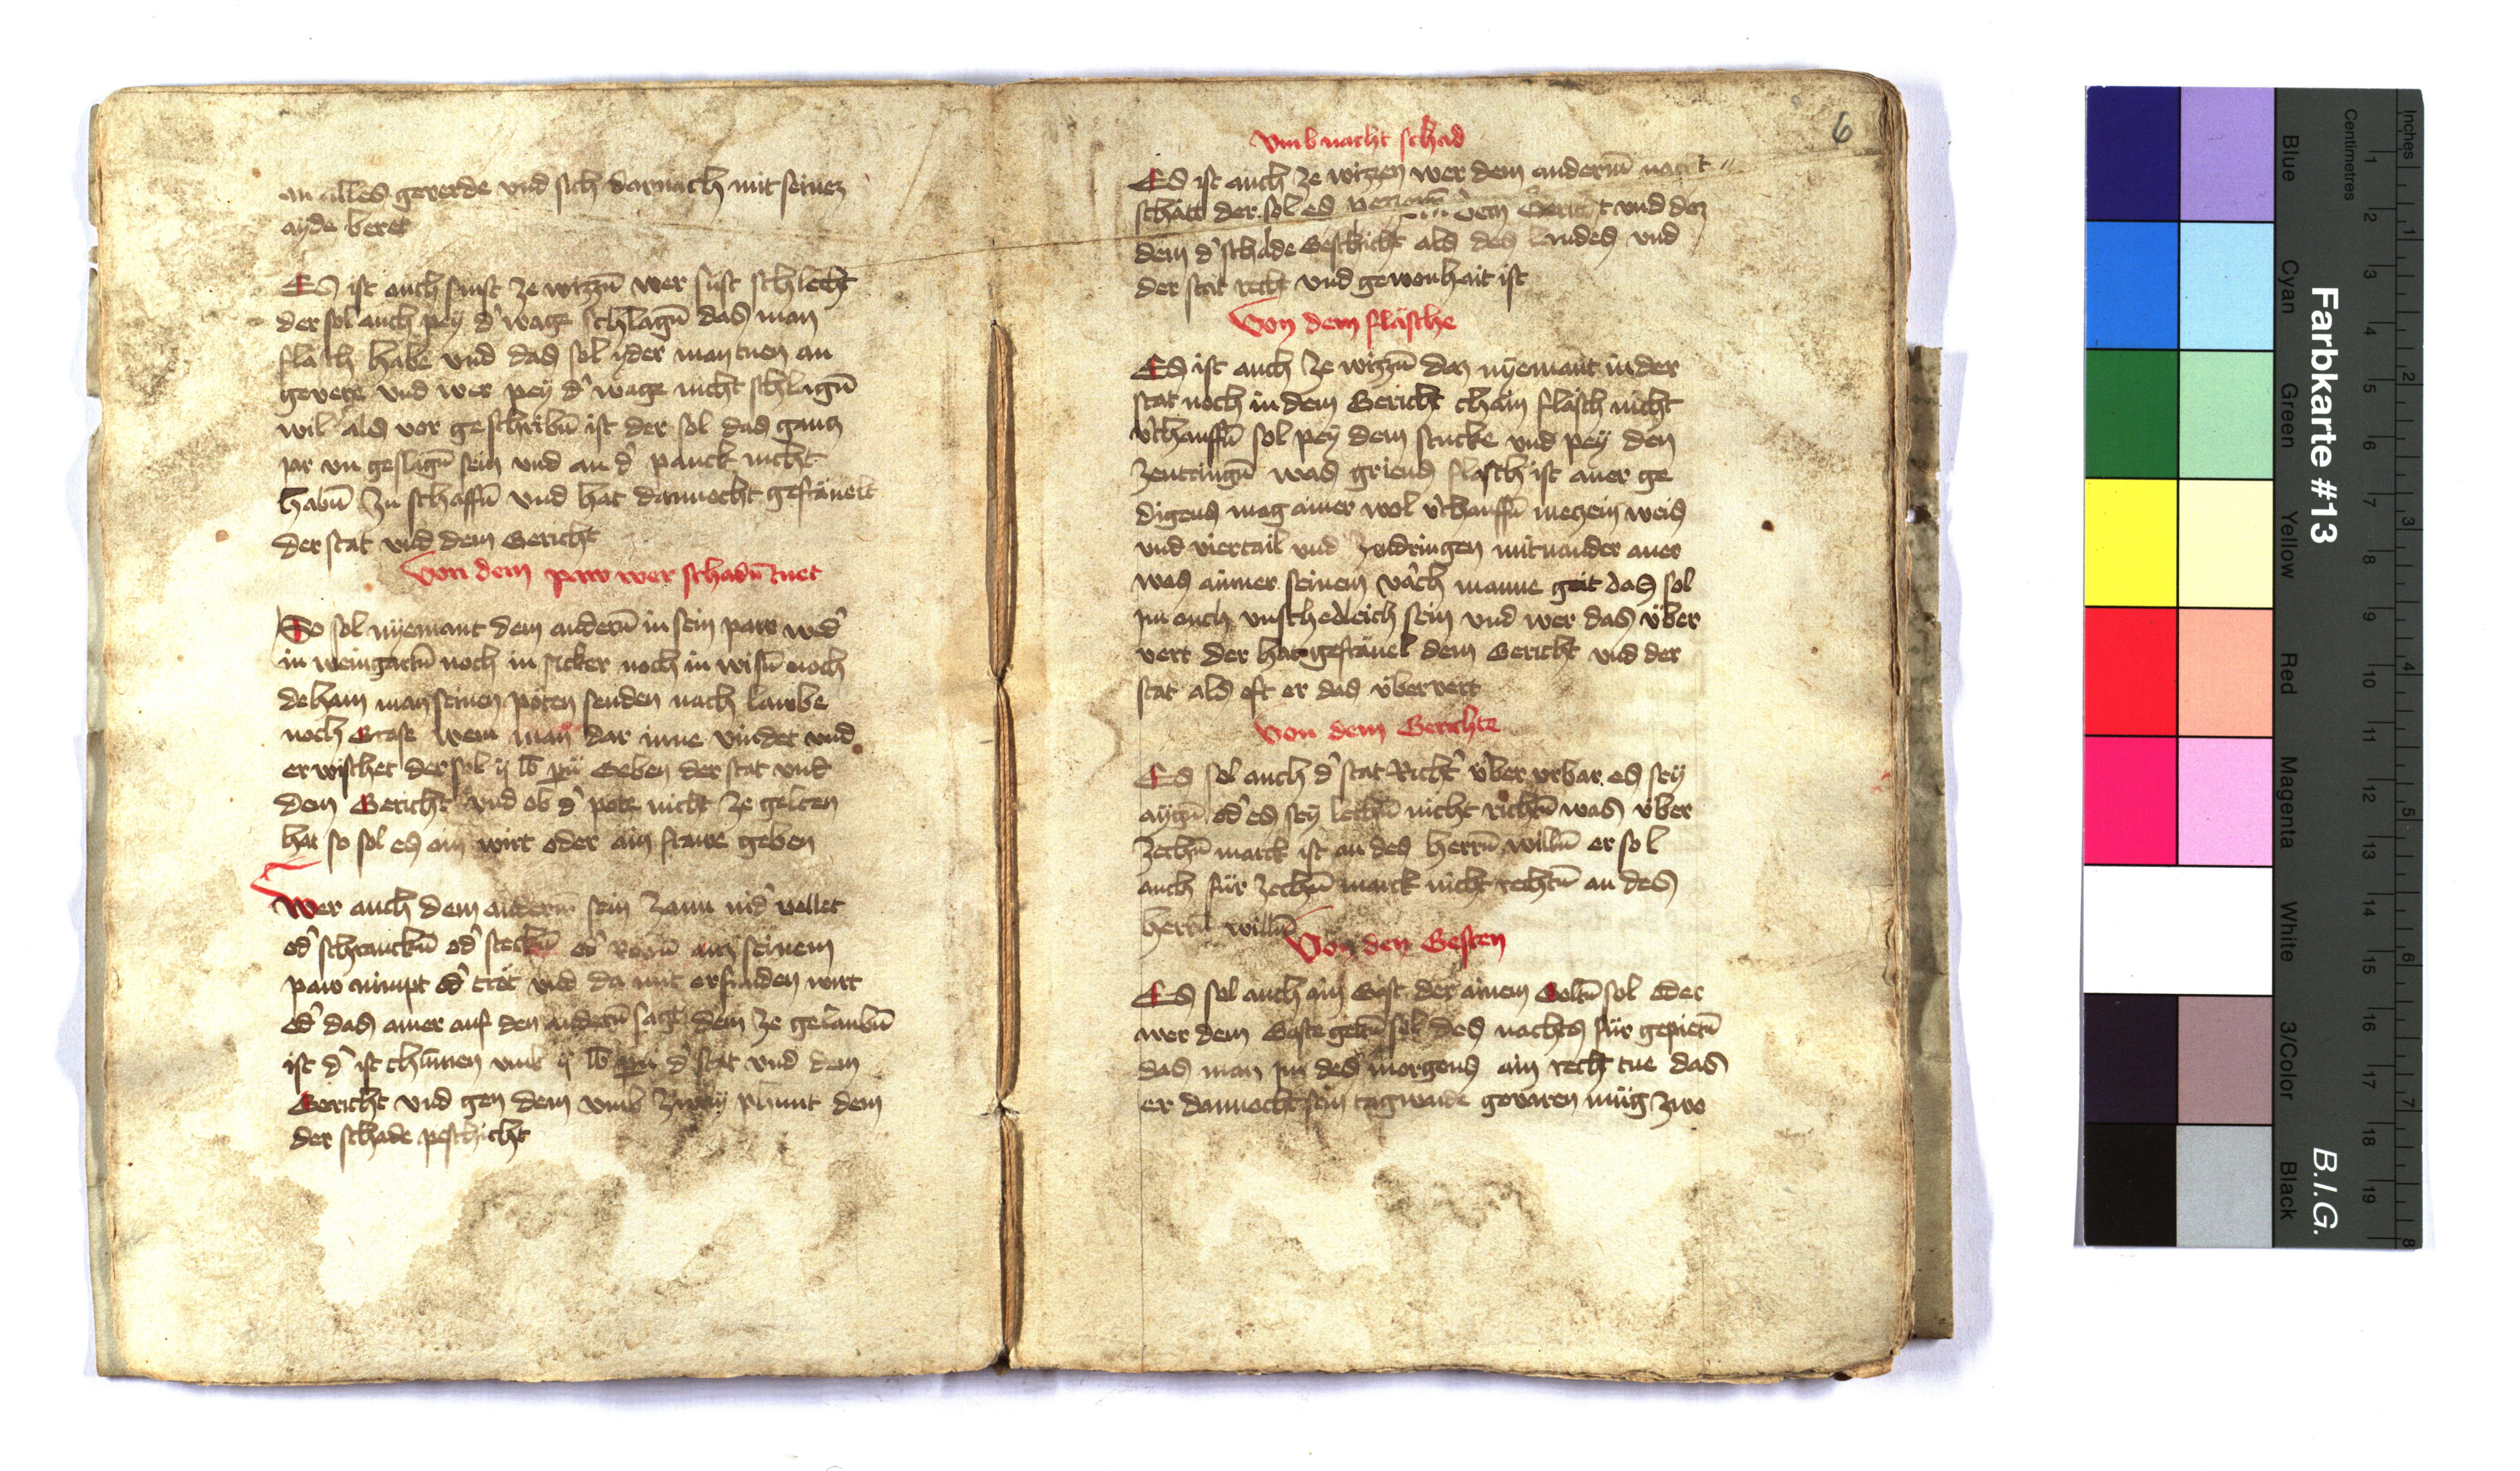 an alles geverde vnd sich darnach mit seinez
ayde beret
Es ist auch sunst ze wizzn̄ wer sust schlecht
der sol auch pey d' wage schlagn̄ das man
flasch habe vnd das sol yder man tuen an
gevere vnd wer pey d' wage nicht schlagn̄
wil als vor geschribn̄ ist der sol das gancz
jar vn geslagn̄ sein vnd an d' panck nicht
habn̄ zu schaffn̄ vnd hat dannocht gefräuelt
der stat vnd dem Gericht
Von dem paw wer schadn̄ tuet
So sol nyemant dem andern̄ in sein paw wed'
in weingartn̄ noch in äcker noch in wisn̄ noch
dehain man seinen poten senden nach laube
noch Grase wem man dar inne vindet vnd
er wischet der sol ij lb pn̄ Geben der stat vnd
dem Gericht vnd ob d' pote nicht ze gelten
hat so sol es ain wirt oder ain frawe geben
Wer auch dem andern̄ sein zaun nid' vellet
od' schranckn̄ od' steckn̄ od' auz seinem
paw nimpt od' tret vnd da mit erfunden wirt
od' das ainer auf den andern̄ sagt dem ze gelaubn̄
ist d' ist chumen vmb ij lb pn̄ d' stat vnd dem
Gericht vnd gen dem vmb zway phunt dem
der schade peschicht
6
Vmb nacht schad
Es ist auch ze wizzen wer dem andern̄ nacht
schätt der sol es dem Gericht vnd dez
dem d' schade Geschicht als des landes vnd
der stat recht vnd gewonhait ist
Von dem fläsche
Es ist auch ze wizzn̄ daz nyemant in der
stat noch in dem Gericht chain fläsch nicht
v'chauffn̄ sol pey dem stucke vnd pey den
zentringn̄ was griens flasch ist auer ge
digens mag ainer wol v'chauffn̄ metzein weis
vnd viertail vnd zendringen mitnander auer
was ainner seinem nach manne geit das sol
jm auch vnschedleich sein vnd wer das über
vert der hat gefräuelt dem Gericht vnd der
stat als oft er das übervert
Von dem Gerichte
Es sol auch d' stat Richt' über vrbar es sey
aygn̄ od' es sey lechn̄ nicht richtn̄ was über
zechn̄ marck ist an des herrn̄ willn̄ er sol
auch für zechn̄ marck nicht rechtn̄ an des
herrn̄ willn̄
Von den Gesten
Es sol auch ain Gast der ainem Geltn̄ sol oder
wer dem Geste geltn̄ sol des nachtes für gepietn̄
das man jm des morgens ain recht tue das
er dannocht sein tagwaide gevaren müg zwo